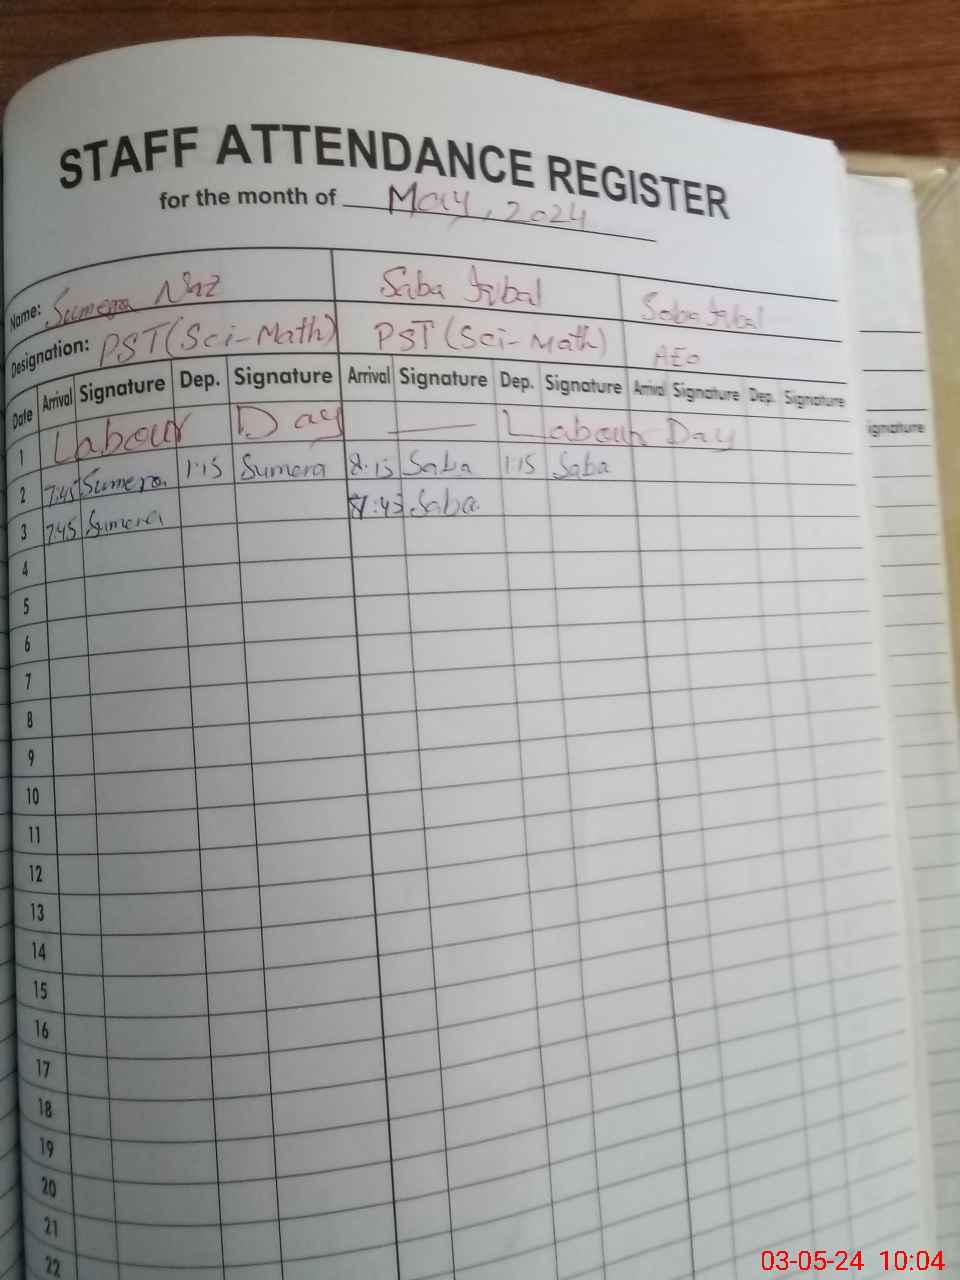 STAFF ATTENDANCE REGISTER
for the month of May, 2024
Name: Sumera Naz Saba Iqbal Saba Iqbal
Designation: PST (Sci-Math) PST (Sci-Math) AEO
Date Arrival Signature Dep. Signature Arrival Signature Dep. Signature Arrival Signature Dep. Signature
ignature
1 Labour Day — Labour Day
2 7:45 Sumera 1:15 Sumera 8:15 Saba 1:15 Saba
3 7:45 Sumera 7:43 Saba
4
5
6
7
8
9
10
11
12
13
14
15
16
17
18
19
20
21
22
03-05-24 10:04